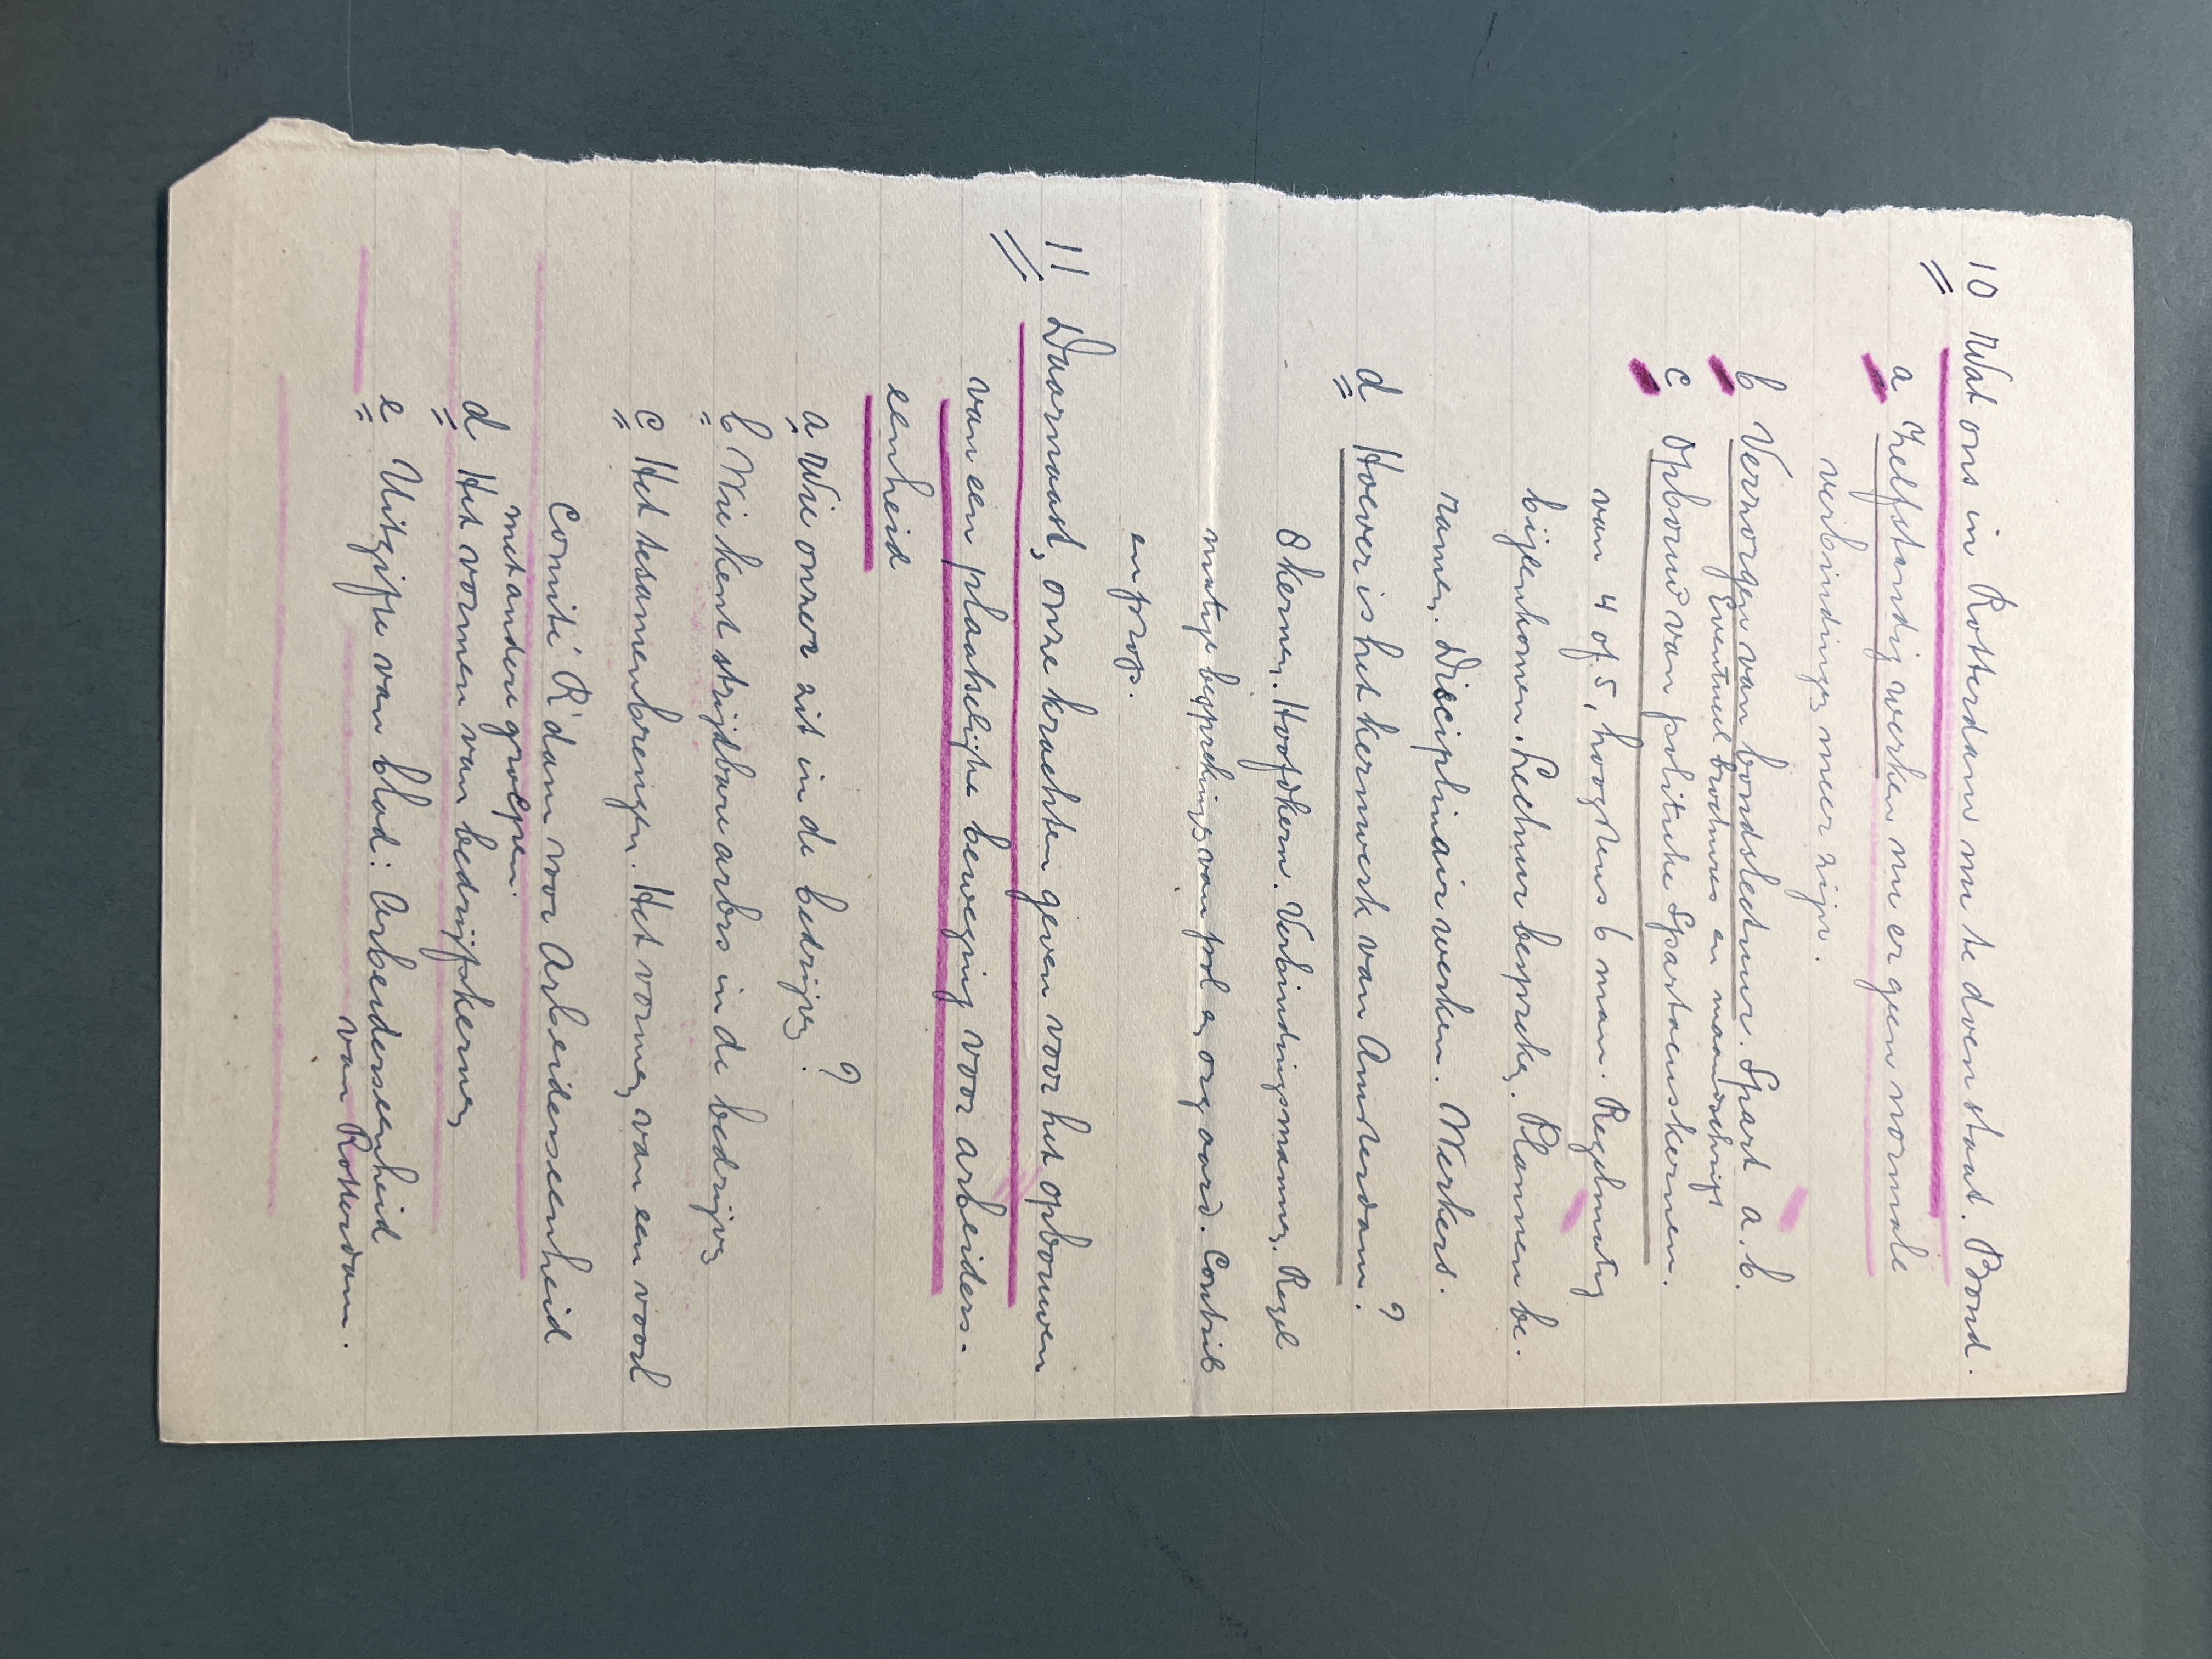 10 Wat ons in Rotterdam nu te doen staat. Bond.
a Zelfstandig werken nu er geen normale
verbindingen meer zijn.
b Verzorgen van bondslectuur. Spart a. b.
Eventueel brochures en maandschrift
c Opbouw van politieke Spartacuskernen.
van 4 of 5, hoogstens 6 man. Regelmatig
bijeenkomen. Lectuur bespreken. Plannen be.
ramen. Disciplinair werken. Werkers.
d Hoever is het kernwerk van Amsterdam. ?
8 kernen. Hoofdkern. Verbindingsmannen. Regel
matige besprekings van pol en org aard. Contrib
en prop.
11 Daarnaast, onze krachten geven voor het opbouwen
van een plaatselijke beweging voor arbeiders.
eenheid
a Wie onzer zit in de bedrijven ?
b Wie kent strijdbare arbrs in de bedrijven
c Het tesamenbrengen. Het vormen van een voorl
Comité R'dam voor Arbeiderseenheid
met andere groepen.
d Het vormen van bedrijfskernen
e Uitgifte van blad: Arbeiderseenheid
van Rotterdam.